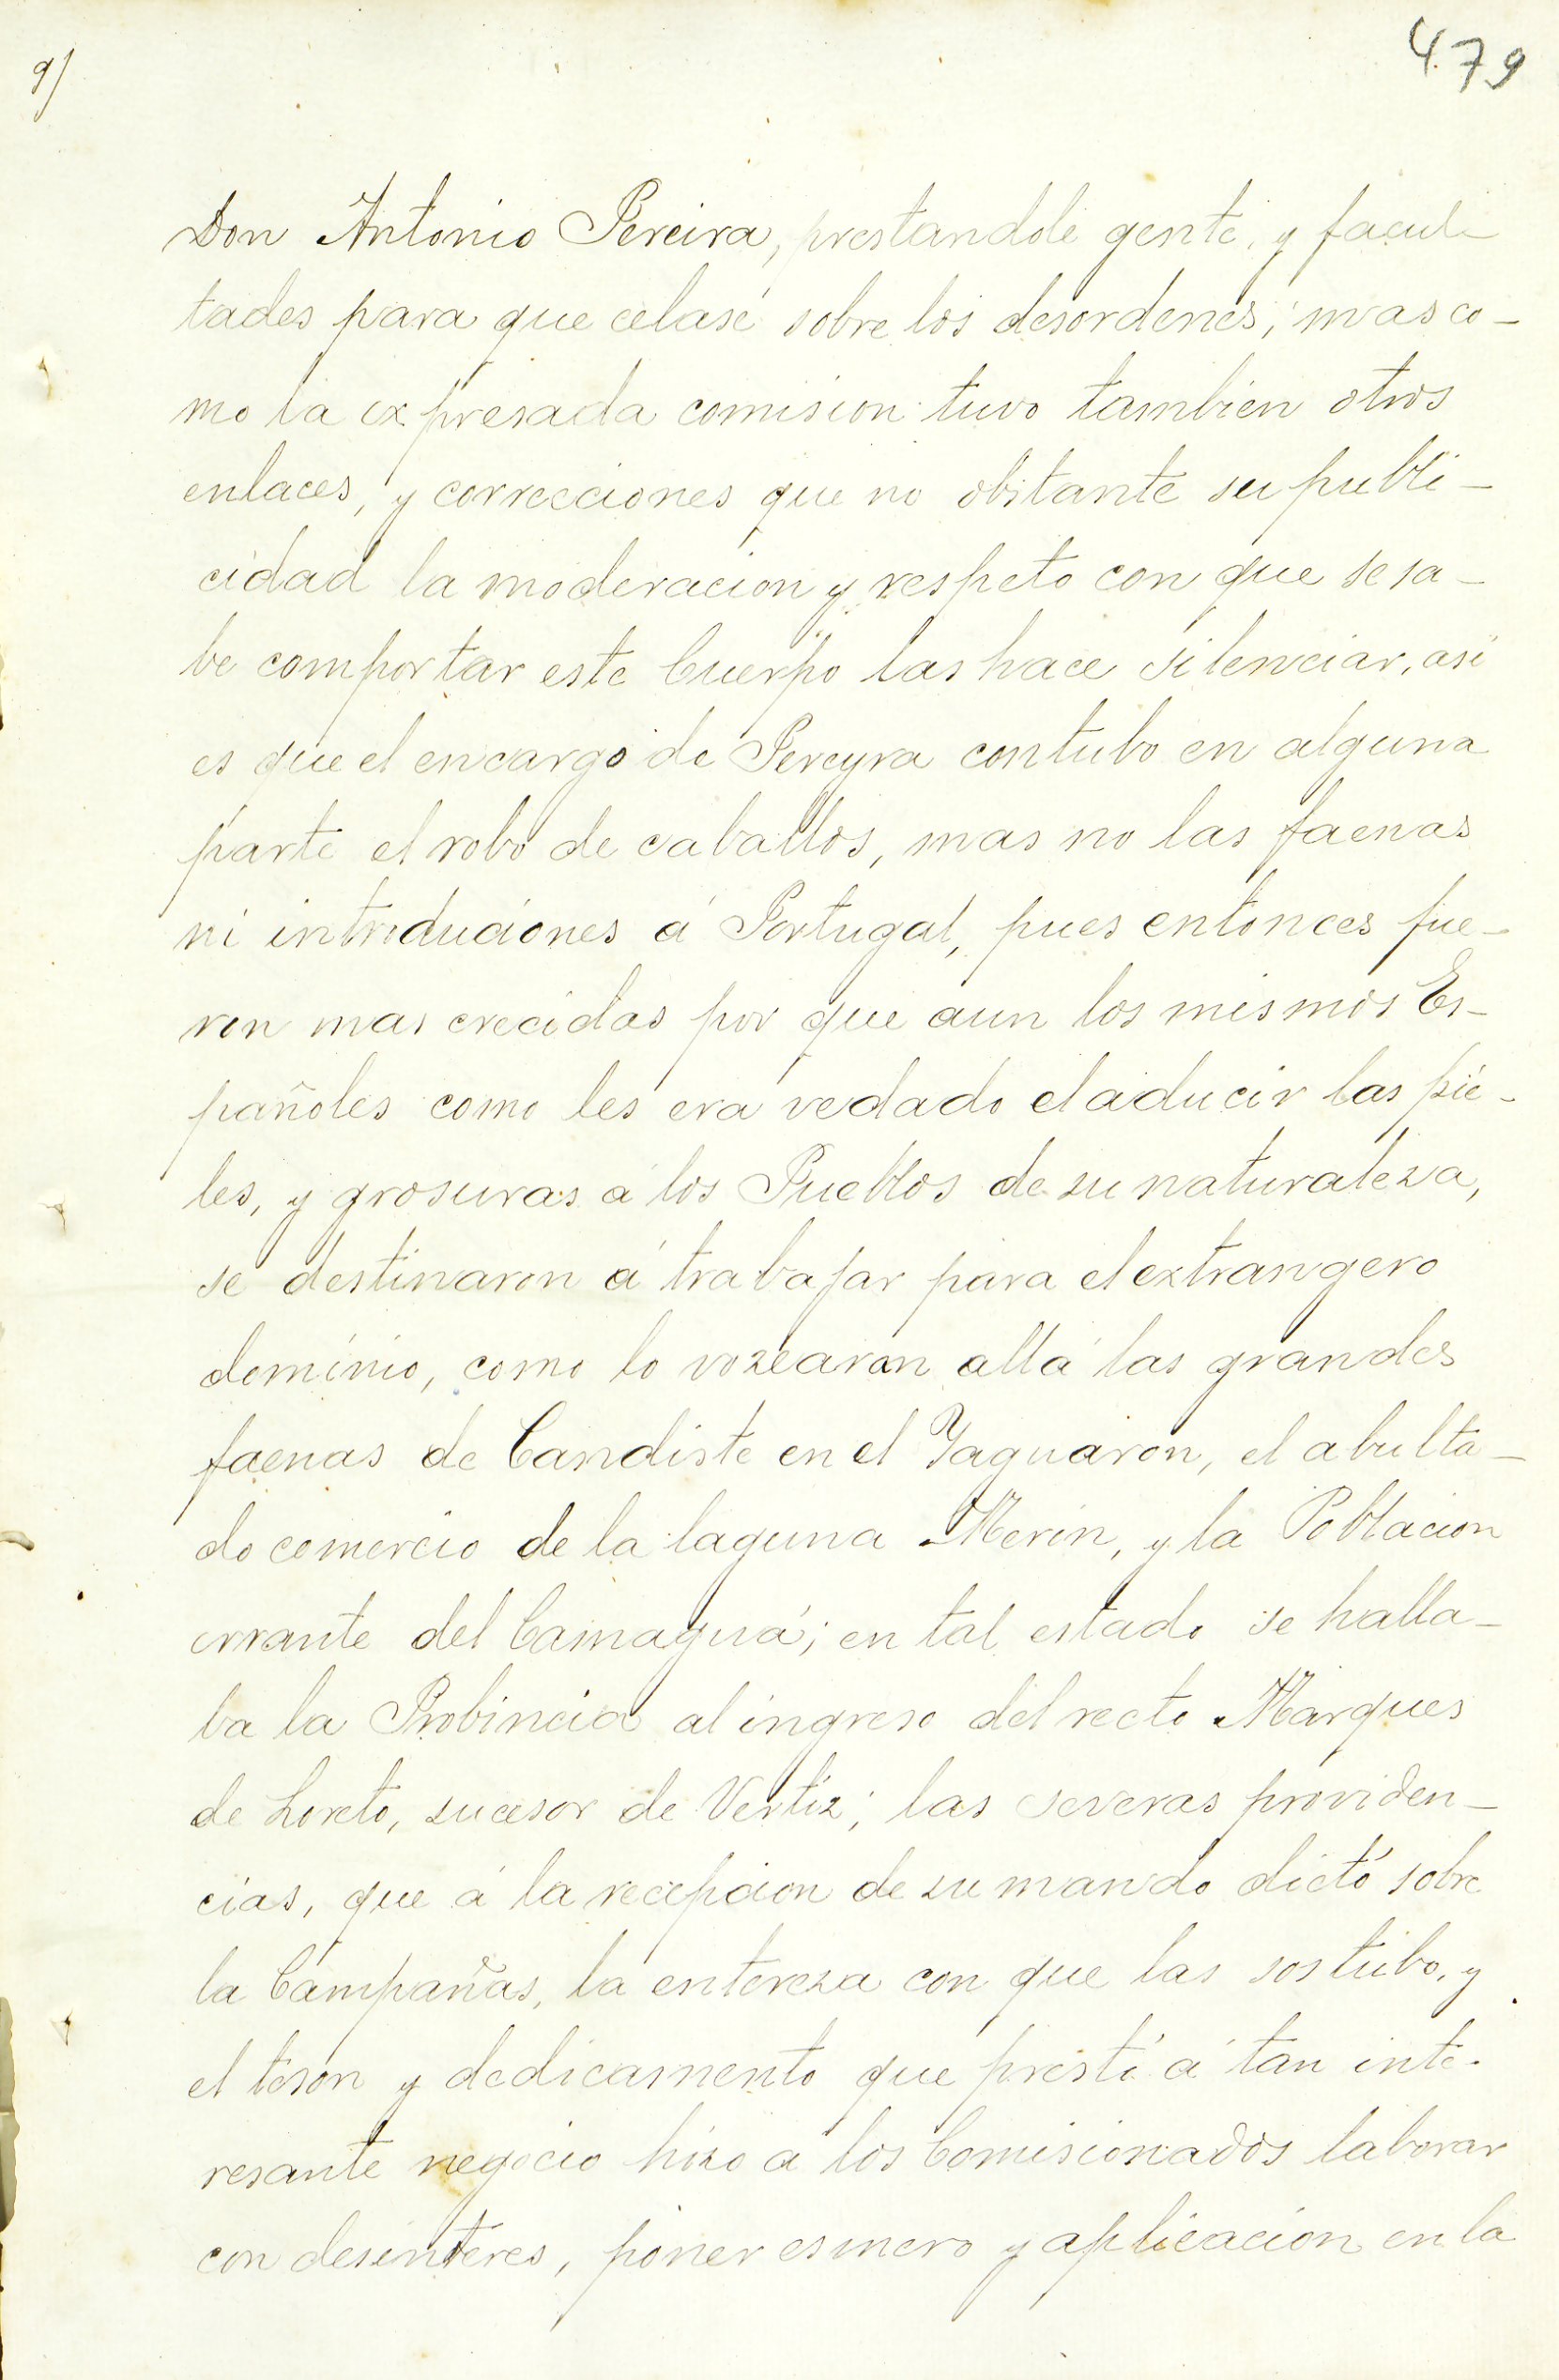 9/
479
Don Antonio Pereira, prestandole gente, y facul-
tades para que celase sobre los desordenes; mas co-
mo la expresada comision tuvo tambien otros
enlaces, y correcciones que no obstante su publi-
cidad la moderacion y respeto con que se sa-
be comportar este Cuerpo las hace silenciar, asi
es que el encargo de Pereyra contubo en alguna
parte el robo de caballos, mas no las faenas
ni introduciones á Portugal, pues entonces fue-
ron mas crecidas por que aun los mismos Es-
pañoles como les era vedado el aducir las pie-
les, y grosuras á los Pueblos de su naturaleza,
se destinaron á trabajar para el extrangero
dominio, como lo vozearon allá las grandes
faenas de Candiste en el Yaguaron, el abulta-
do comercio de la laguna Merin, y la Poblacion
errante del Camaguá; en tal estado se halla-
ba la Probincia al ingreso del recto Marques
de Loreto, sucesor de Vertiz; las severas providen-
cias, que á la recepcion de su mando dictó sobre
la Campañas, la entereza con que las sostubo, y
el teson y dedicamento que prestó á tan inte-
resante negocio hizo á los Comisionados laborar
con desinteres, poner esmero y aplicacion en la